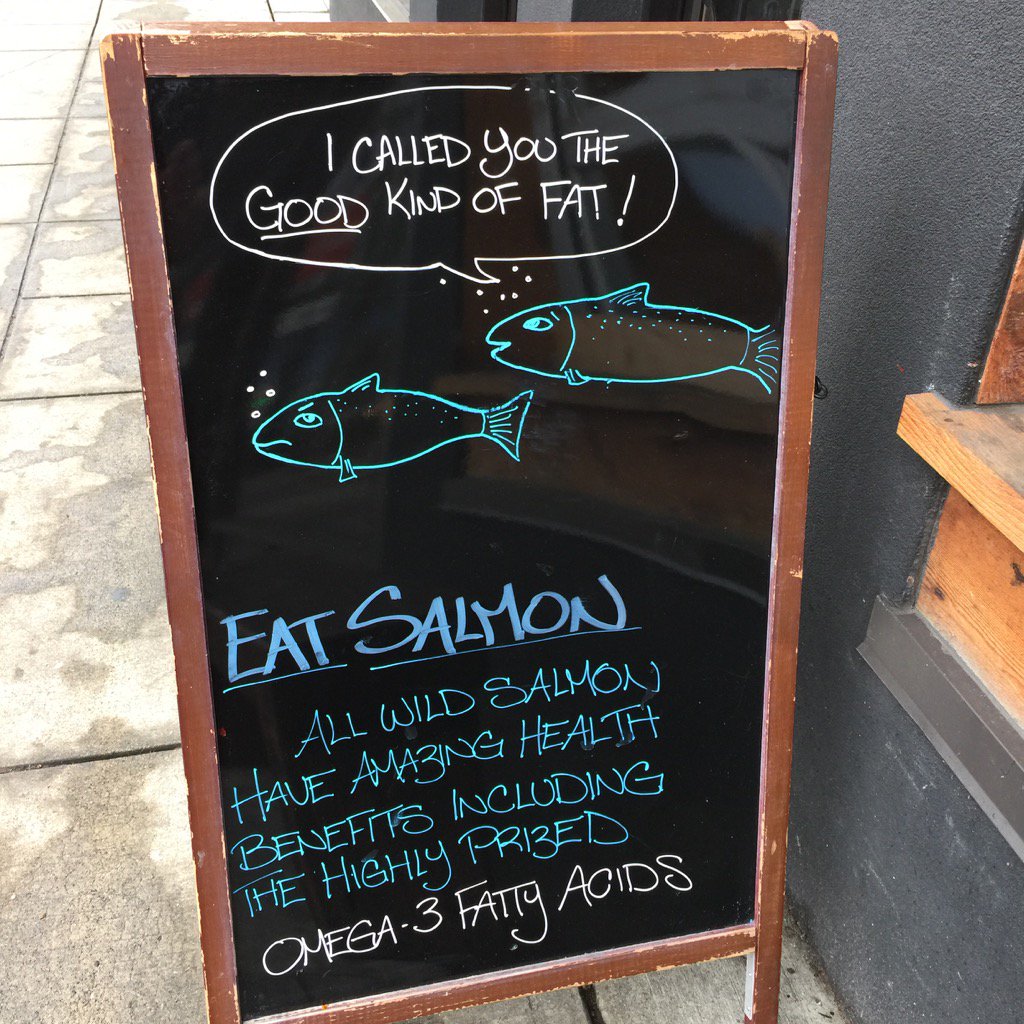 I CALLED YOU THE
GOOD KIND OF FAT!
EAT SALMON
ALL WILD SALMON
HAVE AMAZING HEALTH
BENEFITS INCLUDING
THE HIGHLY PRIZED
OMEGA-3 FATTY ACIDS